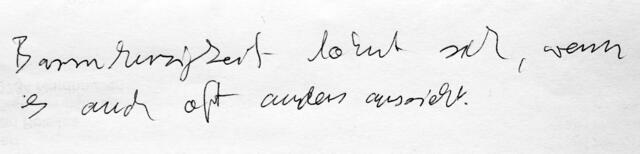 Barmherzigkeit lohnt sich, wenn
es auch oft anders aussieht.